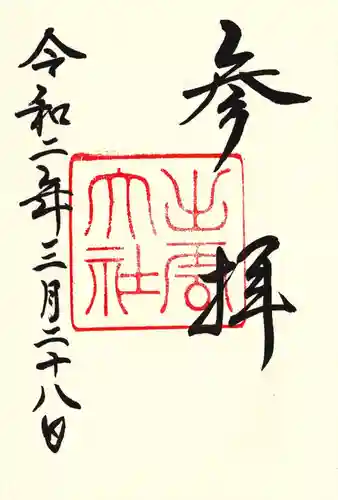 参拝
出雲大社
令和二年三月二十八日